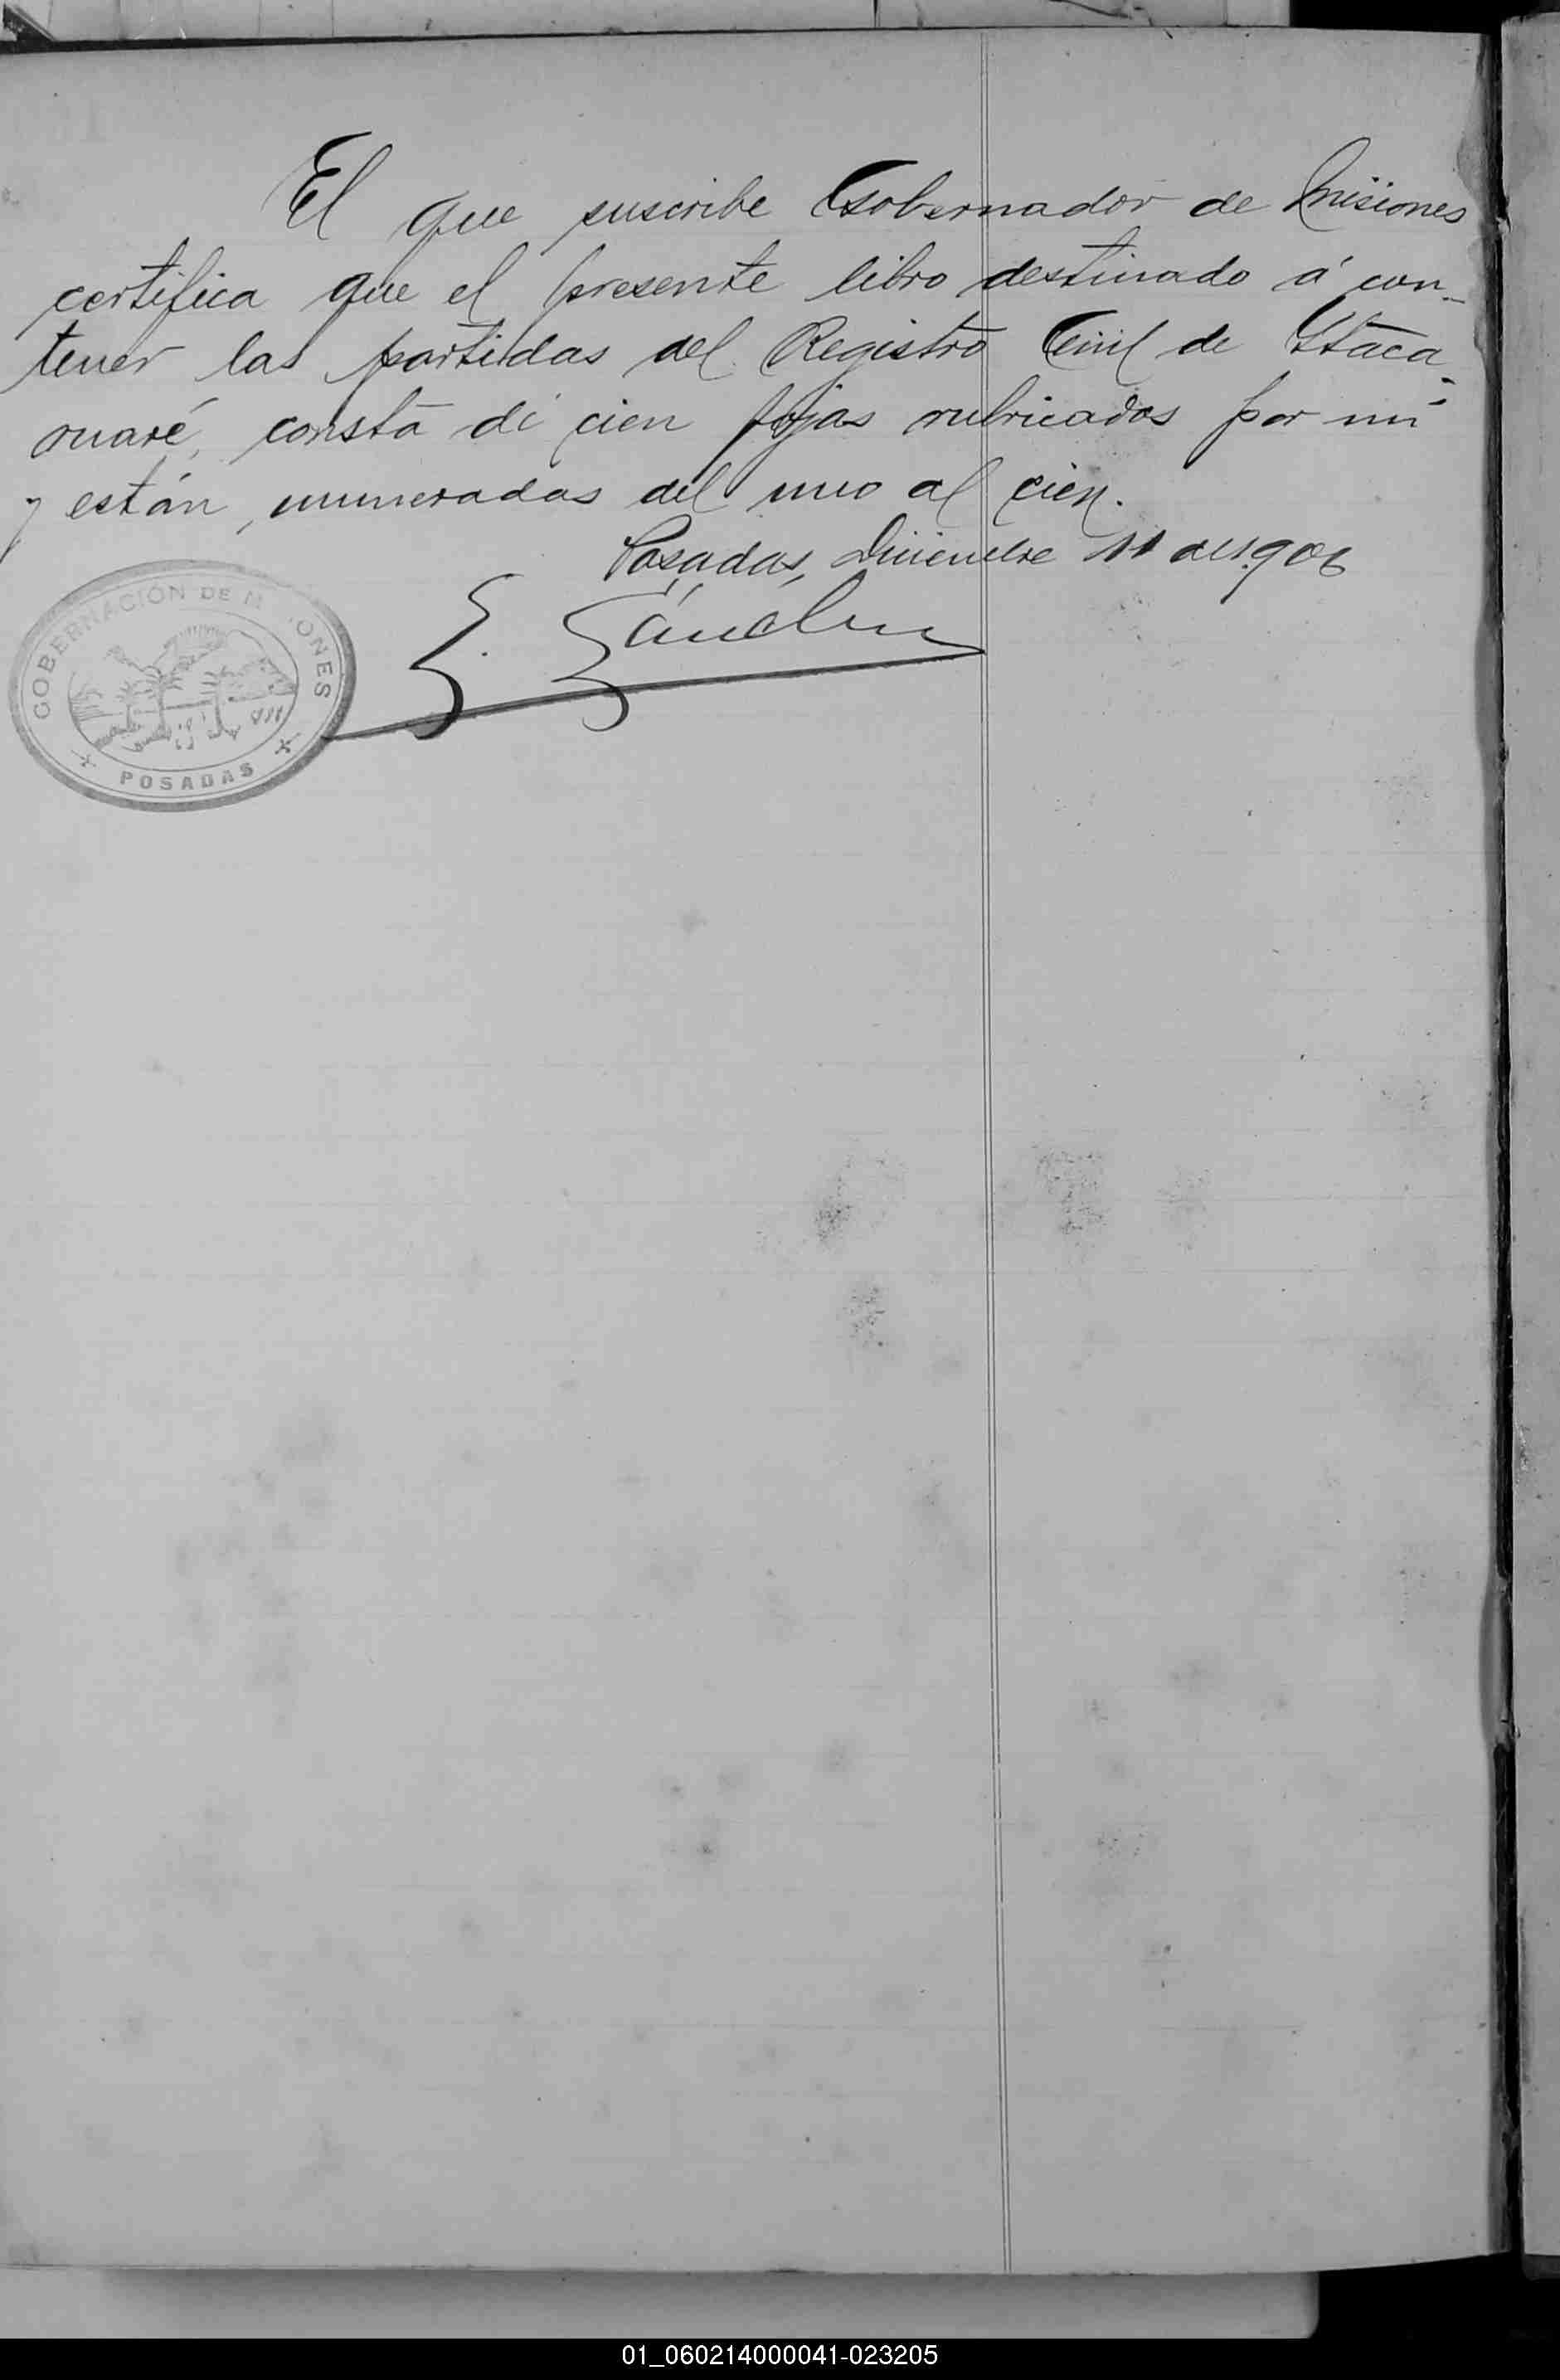 El que suscribe Gobernador de Misiones
certifica que el presente libro destinado á con-
tener las partidas del Registro Civil de Ytaca-
ruaré, consta de cien fojas rubricadas por mi
y están, numeradas del uno al cien.
Posadas, Diciembre 11 de 1.906
E. Sánchez
GOBERNACIÓN DE MISIONES
POSADAS
01_060214000041-023205